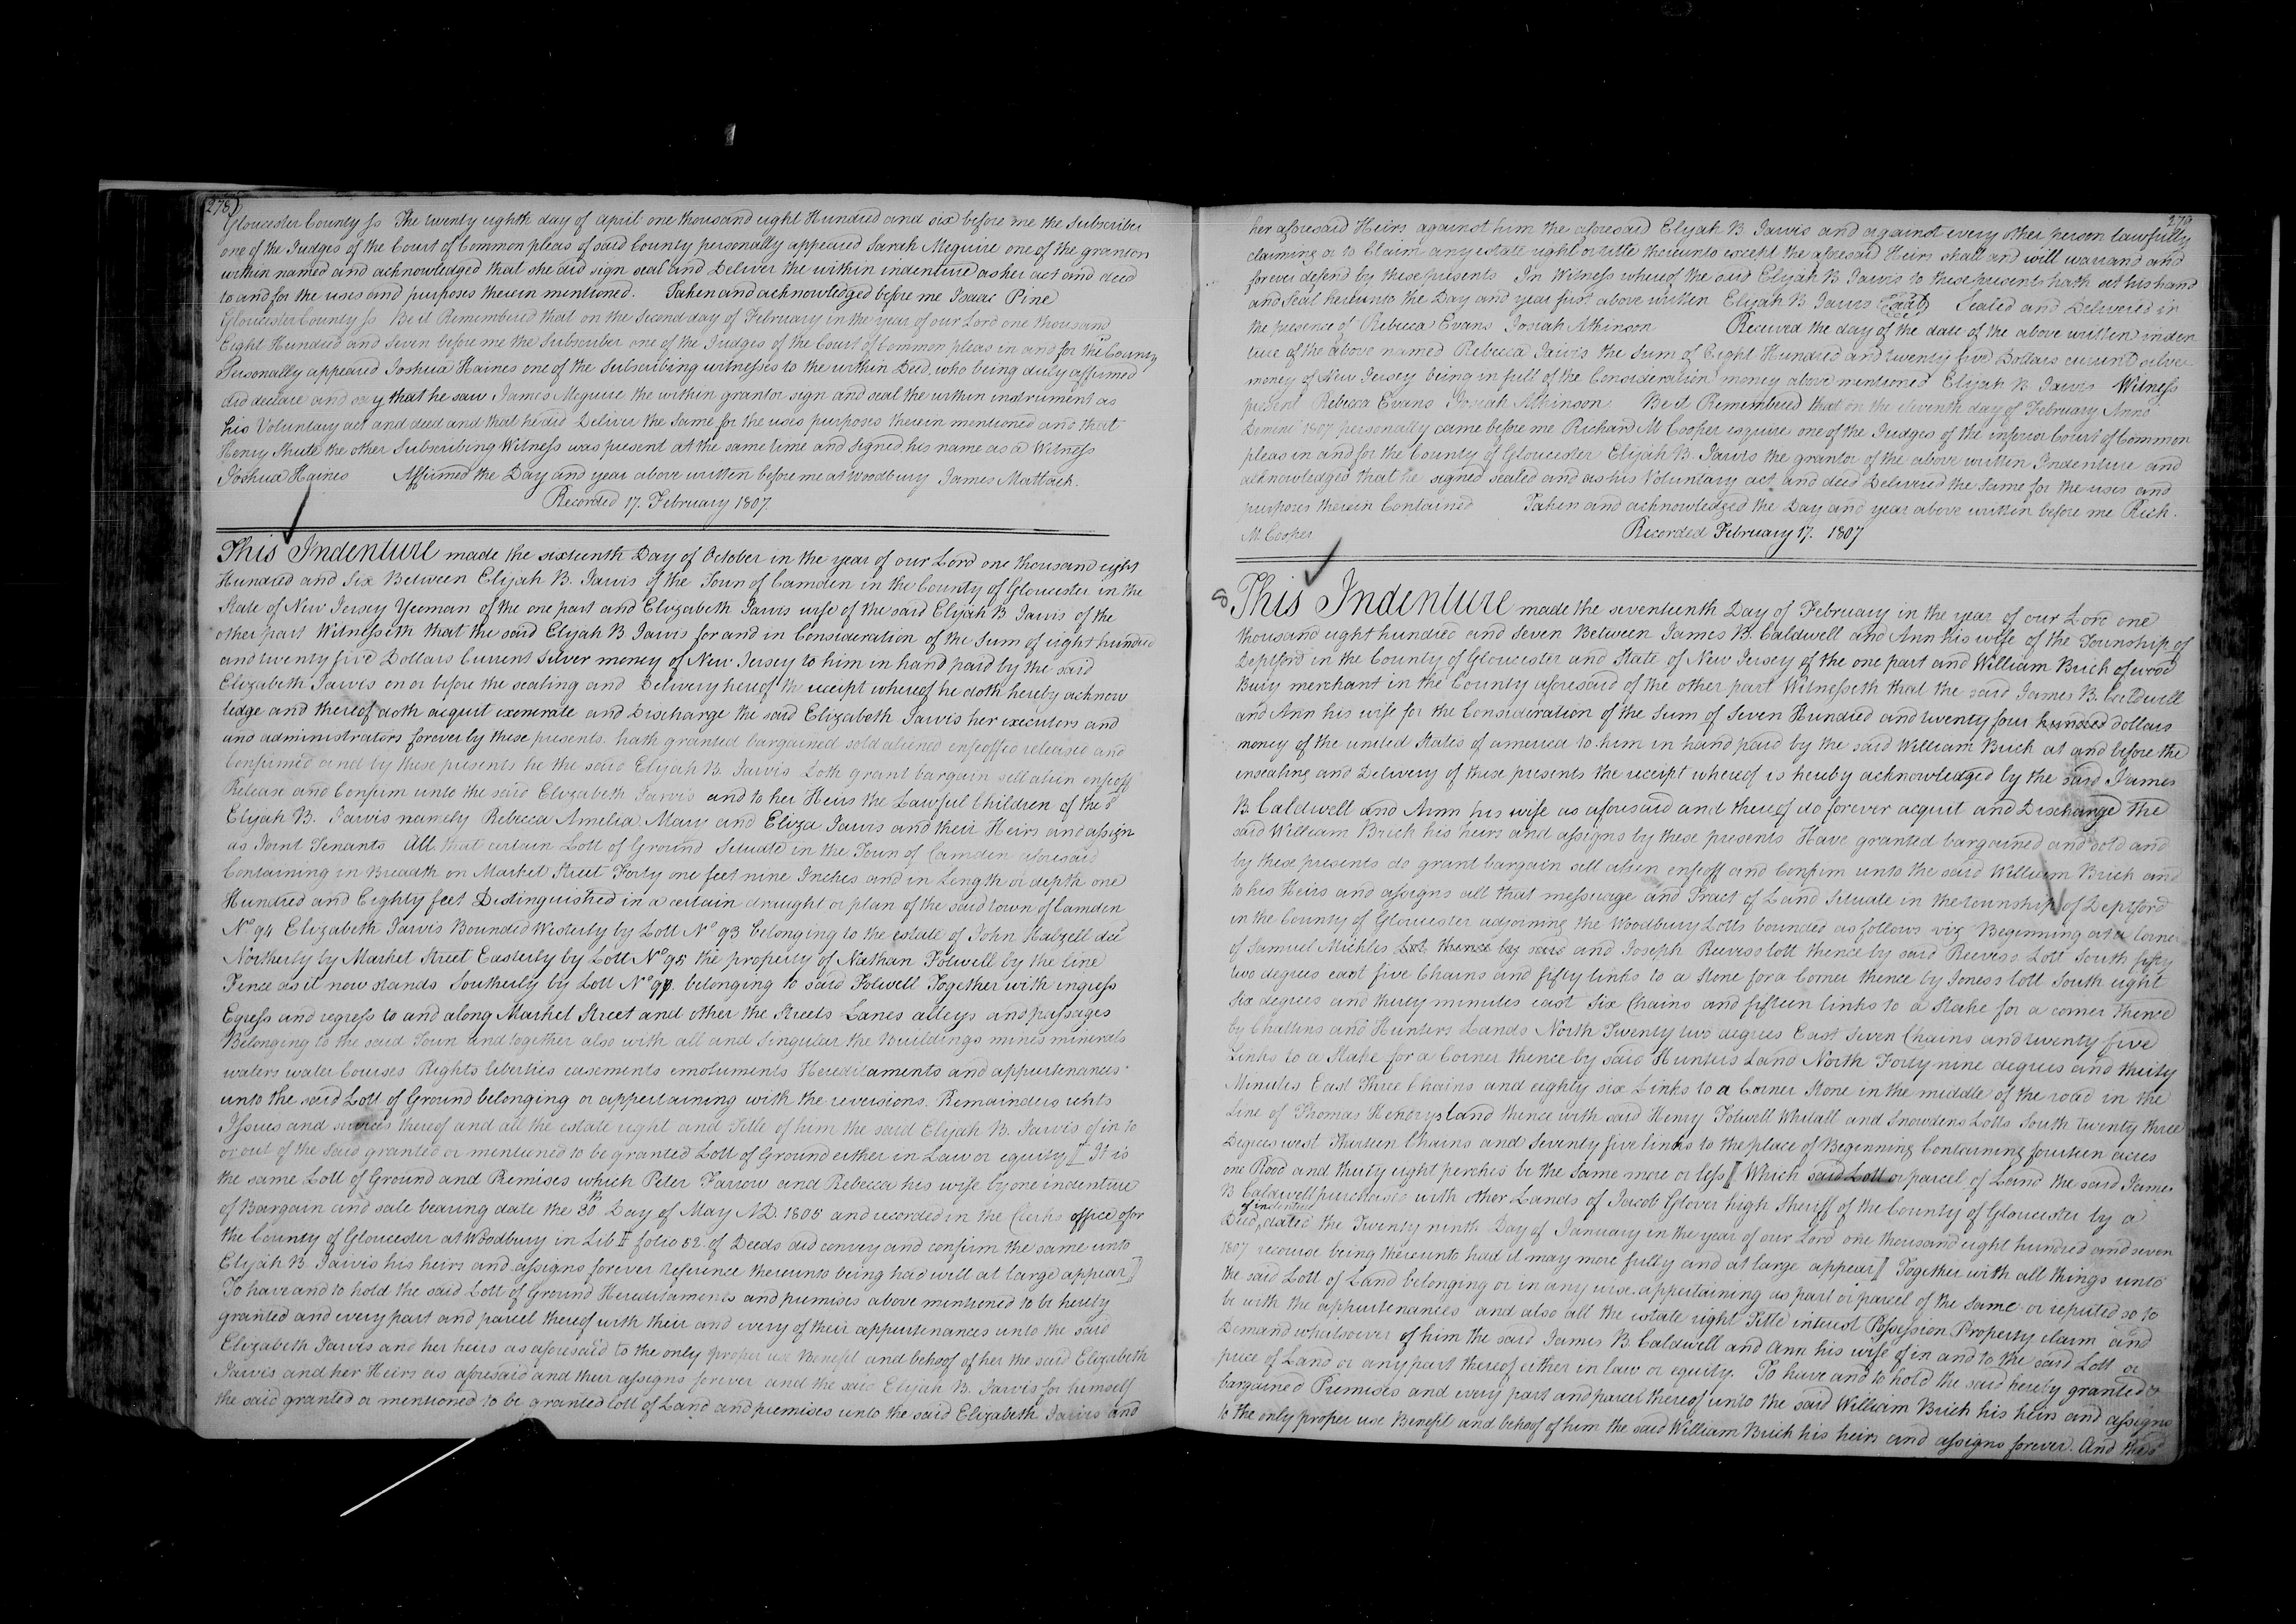 (278)
Gloucester County ss The twenty eighth day of april one thousand eight Hundred and six before me the Subscriber
one of the Judges of the Court of Common pleas of said County personally appeared Sarah Mcguire one of the grantors
within named and acknowledged that she did sign seal and Deliver the within indenture as her act and deed
to and for the uses and purposes therein mentioned. Taken and acknowledged before me Isaac Pine
Gloucester County ss Be it Remembered that on the Second day of February in the year of our Lord one thousand
Eight Hundred and Seven before me the Subscriber one of the Judges of the Court of Common pleas in and for the County
Personally appeared Joshua Haines one of the Subscribing witnesses to the within Deed, who being duly affirmed
did declare and say that he saw James Mcguire the within grantor sign and seal the within instrument as
his Voluntary act and deed and that he did Deliver the Same for the uses purposes therein mentioned and that
Henry Shute the other Subscribing Witness was present at the same time and signed his name as a Witness
Joshua Haines Affirmed the Day and year above written before me at Woodbury James Matlack.
Recorded 17. February 1807.
This Indenture made the sixteenth Day of October in the year of our Lord one thousand eight
Hundred and Six Between Elijah B. Jarvis of the Town of Camden in the County of Gloucester in the
State of New Jersey Yeoman of the one part and Elizabeth Jarvis wife of the said Elijah B Jarvis of the
other part Witnesseth that the said Elijah B. Jarvis for and in Consideration of the Sum of eight hundred
and twenty five Dollars Current Silver money of New Jersey to him in hand paid by the said
Elizabeth Jarvis on or before the sealing and Delivery hereof the receipt whereof he doth hereby acknow
ledge and thereof doth acquit exonerate and Discharge the said Elizabeth Jarvis her executors and
and administrators forever by these presents. hath granted bargained sold aliened enfeoffed released and
Confirmed and by these presents he the said Elijah B. Jarvis Doth grant bargain sell alien enfeoff
Release and Confirm unto the said Elizabeth Jarvis and to her Heirs the Lawful Children of the sd
Elijah B. Jarvis namely Rebecca Amelia Mary and Eliza Jarvis and their Heirs and assign
as Joint Tenants All that certain Lott of Ground Situate in the Town of Camden aforesaid
Containing in Breadth on Market Street Forty one feet nine Inches and in Length or depth one
Hundred and Eighty feet Distinguished in a certain draught or plan of the said town of Camden
No 94 Elizabeth Jarvis Bounded Westerly by Lott No 93 belonging to the estate of John Halzell decd
Northerly by Market Street Easterly by Lott No 95 the property of Nathan Folwell by the line
Fence as it now stands Southerly by Lott No belonging to said Folwell Together with ingress
Egress and regress to and along Market Street and other the Streets Lanes alleys and passages
Belonging to the said Town and together also with all and Singular the Buildings mines minerals
waters water Courses Rights liberties easements emoluments Hereditaments and appurtenances
unto the said Lott of Ground belonging or appertaining with the reversions. Remainders rents
Issues and services thereof and all the estate right and Title of him the said Elijah B. Jarvis of in to
or out of the said granted or mentioned to be granted Lott of Ground either in Law or equity [ It is
the same Lott of Ground and Premises which Peter Farrow and Rebecca his wife by one indenture
of Bargain and sale bearing date the 30th Day of May A.D. 1805 and recorded in the Clerks office of or
the County of Gloucester at Woodbury in Lib I folio 52. of Deeds did convey and confirm the same unto
Elijah B. Jarvis his heirs and assigns forever reference thereunto being had will at large appear]
To have and to hold the said Lott of Ground Hereditaments and premises above mentioned to be hereby
granted and every part and parcel thereof with their and every of their appurtenances unto the said
Elizabeth Jarvis and her heirs as aforesaid to the only proper use Benefit and behoof of her the said Elizabeth
Jarvis and her Heirs as aforesaid and their assigns forever and the said Elijah B. Jarvis for himself
the said granted or mentioned to be granted lott of Land and premises unto the said Elizabeth Jarvis and
279
her aforesaid Heirs against him the aforesaid Elijah B. Jarvis and against every other person lawfully
claiming or to Claim any estate right or title thereunto except the aforesaid Heirs shall and will warrand and
forever defend by these presents In Witness whereof the said Elijah B. Jarvis to these presents hath set his hand
and Seal hereunto the Day and year first above written Elijah B Jarvis (Seal) Sealed and Delivered in
the presence of Rebecca Evans Josiah Atkinson Received the day of the date of the above written inden
ture of the above named Rebecca Jarvis the Sum of Eight Hundred and twenty five Dollars current silver
money of New Jersey being in full of the Consideration money above mentioned Elijah B Jarvis Witness
present Rebecca Evans Josiah Atkinson Be it Remembered that on the seventh day of February Anno
Domini 1807 personally came before me Richard M Cooper esquire one of the Judges of the inferior Court of Common
pleas in and for the County of Gloucester Elijah B. Jarvis the grantor of the above written Indenture and
acknowledged that he signed sealed and as his Voluntary act and deed Delivered the same for the uses and
purposes therein Contained Taken and acknowledged the Day and year above written before me Rich.
M. Cooper Recorded February 17. 1807
This Indenture made the seventeenth Day of February in the year of our Lord one
thousand eight hundred and seven Between James B. Caldwell and Ann his wife of the Township of
Deptford in the County of Gloucester and State of New Jersey of the one part and William Brick of wood
Bury merchant in the County aforesaid of the other part Witnesseth that the said James B. Caldwell
and Ann his wife for the Consideration of the Sum of Seven Hundred and twenty four hundred dollars
money of the united States of america to him in hand paid by the said William Brick at and before the
ensealing and Delivery of these presents the receipt whereof is hereby acknowledged by the said James
B. Caldwell and Ann his wife as aforesaid and thereof do forever acquit and Discharge the
said William Brick his heirs and assigns by these presents Have granted bargained and sold and
by these presents do grant bargain sell alien enfeoff and Confirm unto the said William Brick and
to his Heirs and assigns all that messuage and Tract of Land Situate in the township of Deptford
in the County of Gloucester adjoining the Woodbury Lotts bounded as follows viz Beginning at a Corner
of Samuel Mickles Lot. thence by said and Joseph Reevess lott thence by said Reeves's Lott South fifty
two degrees east five Chains and fifty links to a Stone for a Corner thence by Joness lott South eight
Six degrees and thirty minutes east Six Chains and fifteen links to a Stake for a corner thence
by Chattins and Hunters Lands North Twenty two degrees East Seven Chains and twenty five
Links to a Stake for a Corner thence by said Hunters Land North Forty nine degrees and thirty
Minutes East Three Chains and eighty six Links to a Corner Stone in the middle of the road in the
Line of Thomas Hendrys land thence with said Henry Folwell Whitall and Snowdens Lotts South Twenty three
Degrees west Thirteen Chains and Seventy five links to the place of Beginning Containing fourteen acres
one Rood and thirty eight perches be the same more or less [ Which said Lott or parcel of Land the said James
B Caldwell purchased with other Lands of Jacob Glover high Sheriff of the County of Gloucester by a
Deed of indenture dated the Twenty ninth Day of January in the year of our Lord one thousand eight hundred and seven
1807 recourse being thereunto had it may more fully and at large appear] Together with all things unto
the said Lott of Land belonging or in any wise appertaining as part or parcel of the same or reputed so to
be with the appurtenances and also all the estate right Title interest Possession Property claim and
Demand whatsoever of him the said James B. Caldwell and Ann his wife of in and to the said Lott or
piece of Land or any part thereof either in law or equity. To have and to hold the said hereby granted &
bargained Premises and every part and parcel thereof unto the said William Brick his heirs and assigns
to the only proper use Benefit and behoof of him the said William Brick his heirs and assigns forever. And the